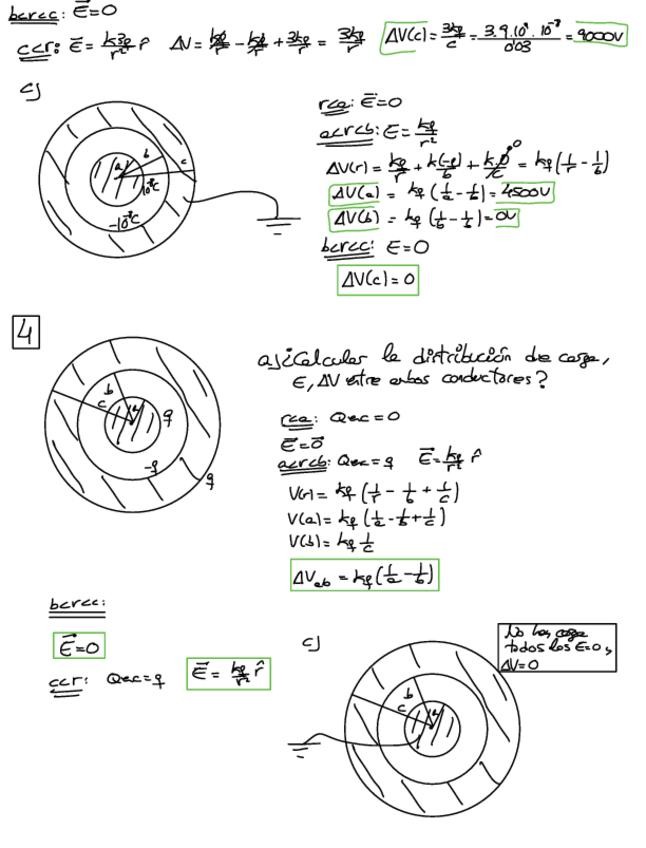 b<r<c: E⃗=0
c<r: E⃗ = k3q/r² r̂ ΔV = kq/r - kq/r + 3kq/r = 3kq/r ΔV(c) = 3kq/c = 3·9·10⁹·10⁻⁸/0'03 = 9000V
c)
r<a: E⃗=0
a<r<b: E = kq/r²
ΔV(r) = kq/r + k(-q)/b + k·0/c = kq(1/r - 1/b)
0
ΔV(a) = kq(1/a - 1/b) = 4500V
ΔV(b) = kq(1/b - 1/b) = 0V
b<r<c: E=0
ΔV(c) = 0
a b c
10⁻⁸C
-10⁻⁸C
4
a) ¿Calcular la distribución de carga,
E, ΔV entre ambos conductores?
b
c a q
-q
q
r<a: Qenc=0
E⃗=0⃗
a<r<b: Qenc=q E⃗=kq/r² r̂
V(r) = kq(1/r - 1/b + 1/c)
V(a) = kq(1/a - 1/b + 1/c)
V(b) = kq 1/c
ΔVab = kq(1/a - 1/b)
b<r<c:
E⃗=0
c<r: Qenc=q E⃗ = kq/r² r̂
c)
No hay carga
todos los E=0,
ΔV=0
b
c a